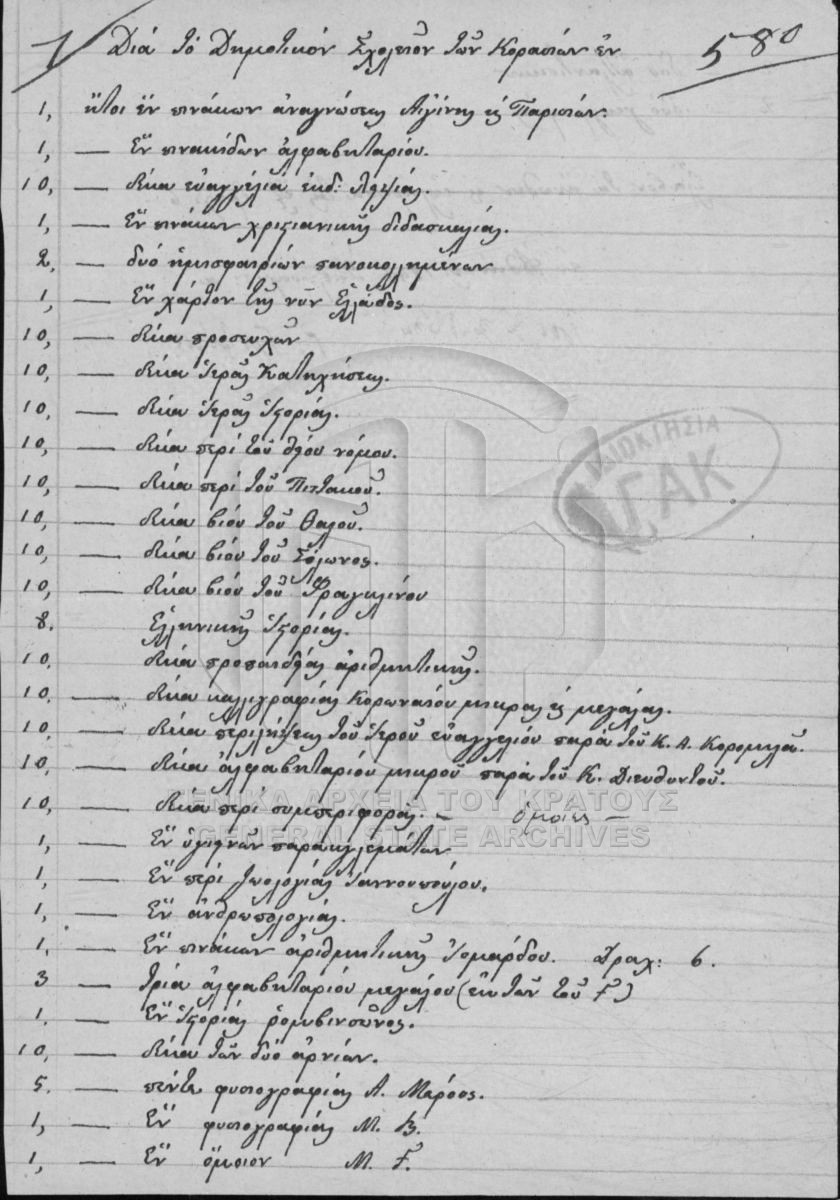 Διά τό Δημοτικόν Σχολεῖον τῶν Κορασίων ἐν
580
1, ἤτοι ἕν πινάκων ἀναγνώσεως Αἰγίνης ἐς Παρισίων.
1, — Ἕν πινακίδων ἀλφαβηταρίου.
10, — δέκα εὐαγγέλια ἐκδ: Λειψίας.
1, — Ἕν πινάκων χριστιανικῆς διδασκαλίας.
2, — δύο ἡμισφαιρίων πανοκολλημένων
1, — Ἕν χάρτον τῆς νῦν Ἑλλάδος.
10, — δέκα προσευχῶν
10, — δέκα Ἱερᾶς Κατηχήσεως.
10, — δέκα Ἱερᾶς Ἱστορίας.
10, — δέκα περί τοῦ θείου νόμου.
10, — δέκα περί τοῦ Πιττακοῦ.
10, — δέκα βίου τοῦ Θαλοῦ.
10, — δέκα βίου τοῦ Σόλωνος.
10, — δέκα βίου τοῦ Φραγκλίνου
8. Ἑλληνικῆς Ἱστορίας.
10, δέκα προπαιδείας ἀριθμητικῆς.
10. — δέκα καλλιγραφίας Κορωναίου μικρας ἐς μεγάλας.
10. — δέκα περιλήψεως τοῦ Ἱεροῦ εὐαγγελίου παρά τοῦ Κ. Α. Κορομηλᾶ.
10, — δέκα ἀλφαβηταρίου μικροῦ παρά τοῦ Κ. Διευθυντοῦ.
10, — δέκα περί συμπεριφορᾶς. — ὁμοίως —
1, — Ἕν ὑγιεινῶν παραγγελμάτων
1, — Ἕν περί ζωολογίας Ἰαννουπούλου.
1, — Ἕν ἀνθρωπολογίας.
1. — Ἕν πινάκων ἀριθμητικῆς Δραχ: 6.
3 — τρία ἀλφαβηταρίου μεγάλου (ἐκ τῶν τοῦ
1. — Ἕν Ἱστορίας ῥομβινσῶνος.
10, — δέκα τῶν δύο ἀρνίων.
5. — πέντε φυσιογραφίας Α. Μέρους.
1, — Ἕν φυσιογραφίας Μ. Β.
1, — Ἕν ὅμοιον Μ. Γ.
ΙΔΙΟΚΤΗΣΙΑ
ΓΑΚ
ΓΕΝΙΚΑ ΑΡΧΕΙΑ ΤΟΥ ΚΡΑΤΟΥΣ
GENERAL STATE ARCHIVES